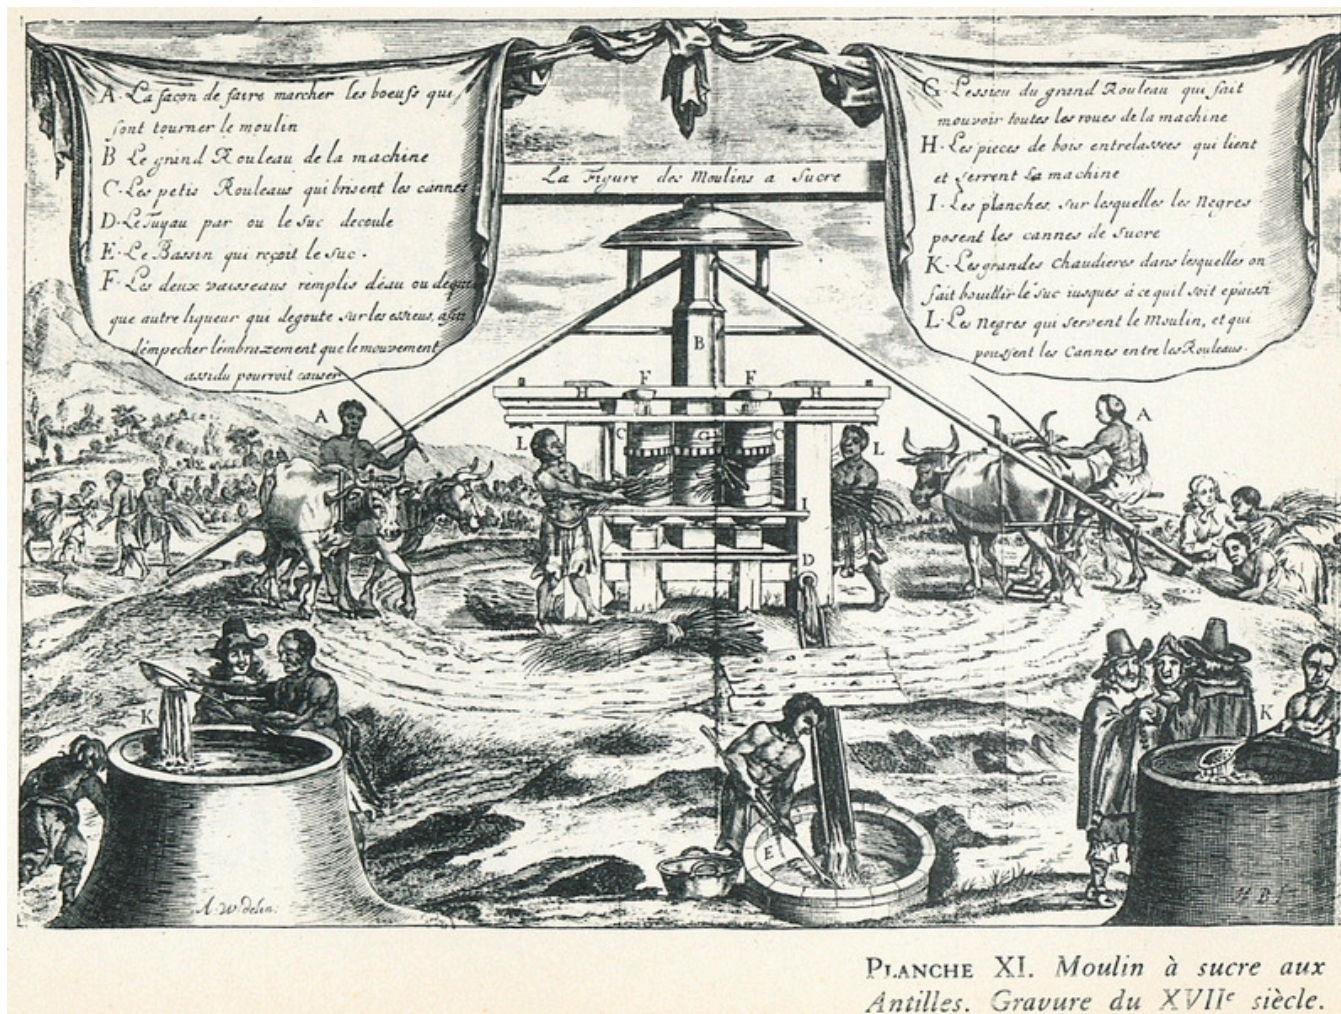 A. La façon de faire marcher les boeufs qui
font tourner le moulin
B Le grand Rouleau de la machine
C. Les petis Rouleaus qui brisent les cannes
D. Le Tuyau par ou le suc decoule
E. Le Bassin qui reçoit le suc.
F. Les deux vaisseaus remplis d'eau ou de
que autre liqueur qui degoute sur les essieus, afin
d'empecher l'embrazement que le mouvement
assidu pourroit causer
La Figure des Moulins a Sucre
G. L'essieu du grand Rouleau qui fait
mouvoir toutes les roues de la machine
H. Les pieces de bois entrelassees qui lient
et serrent la machine
I. Les planches, sur lesquelles les Negres
posent les cannes de sucre
K. Les grandes Chaudieres dans lesquelles on
fait bouillir le suc iusques à ce quil soit epaissi
L. Les Negres qui servent le Moulin, et qui
poussent les Cannes entre les Rouleaus.
B
F F
H H
A A
L C G C L
I
D
K K
E
A. W. delin.
PLANCHE XI. Moulin à sucre aux
Antilles. Gravure du XVIIe siècle.